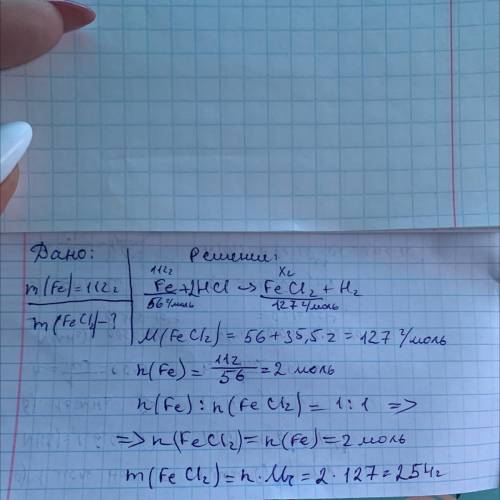 Дано:
m(Fe)=112г
m(FeCl2)-?
Решение:
112г      Xг
Fe+2HCl → FeCl2 + H2
56г/моль      127г/моль
M(FeCl2) = 56 + 35,5·2 = 127 г/моль
n(Fe) = 112/56 = 2 моль
n(Fe) : n(FeCl2) = 1:1 =>
=> n(FeCl2) = n(Fe) = 2 моль
m(FeCl2) = n·Mr = 2·127 = 254г